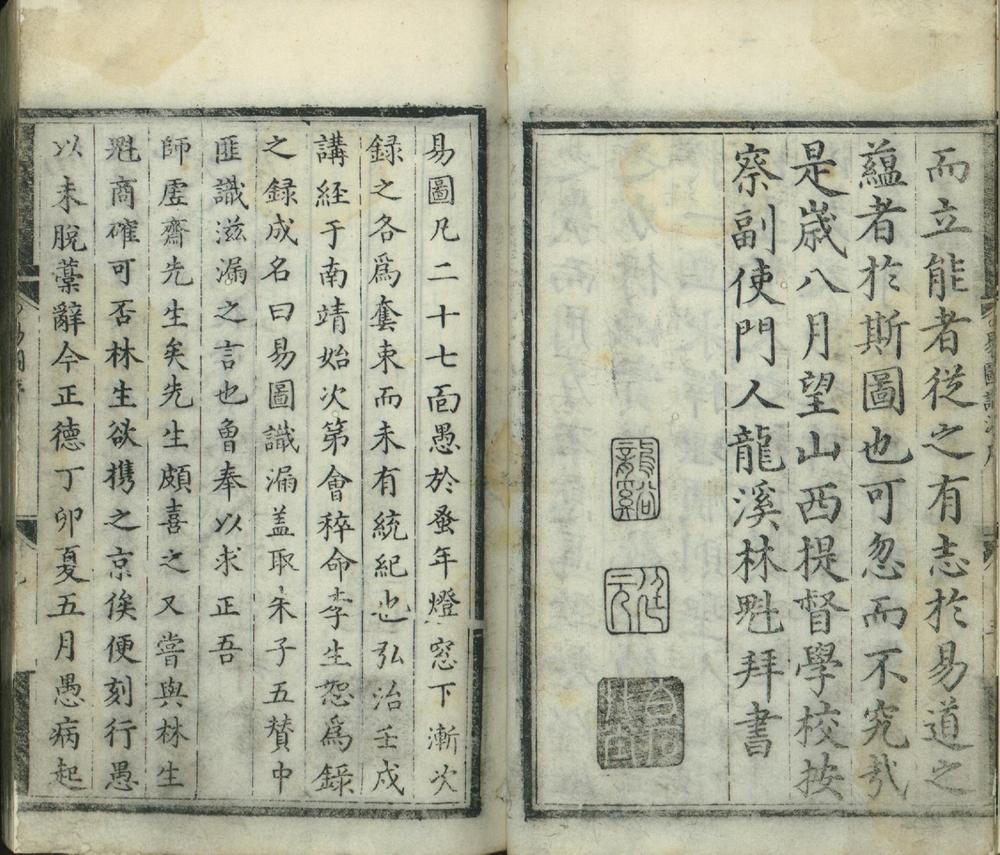 而立能者從之有志於易道之
蘊者於斯圖也可忽而不究㢤
是歳八月望山西提督學校按
察副使門人龍溪林魁拜書
龍谿
廷元
易圖凡二十七面愚於蚤年燈窓下漸次
録之各爲奩束而未有統紀也弘治壬戌
講経于南靖始次第會稡命李生恕爲録
之録成名曰易圖識漏盖取朱子五賛中
匪識滋漏之言也魯奉以求正吾
師虗齋先生矣先生頗喜之又嘗與林生
魁商確可否林生欲携之京俟便刻行愚
以未脫藁辭今正德丁卯夏五月愚病起